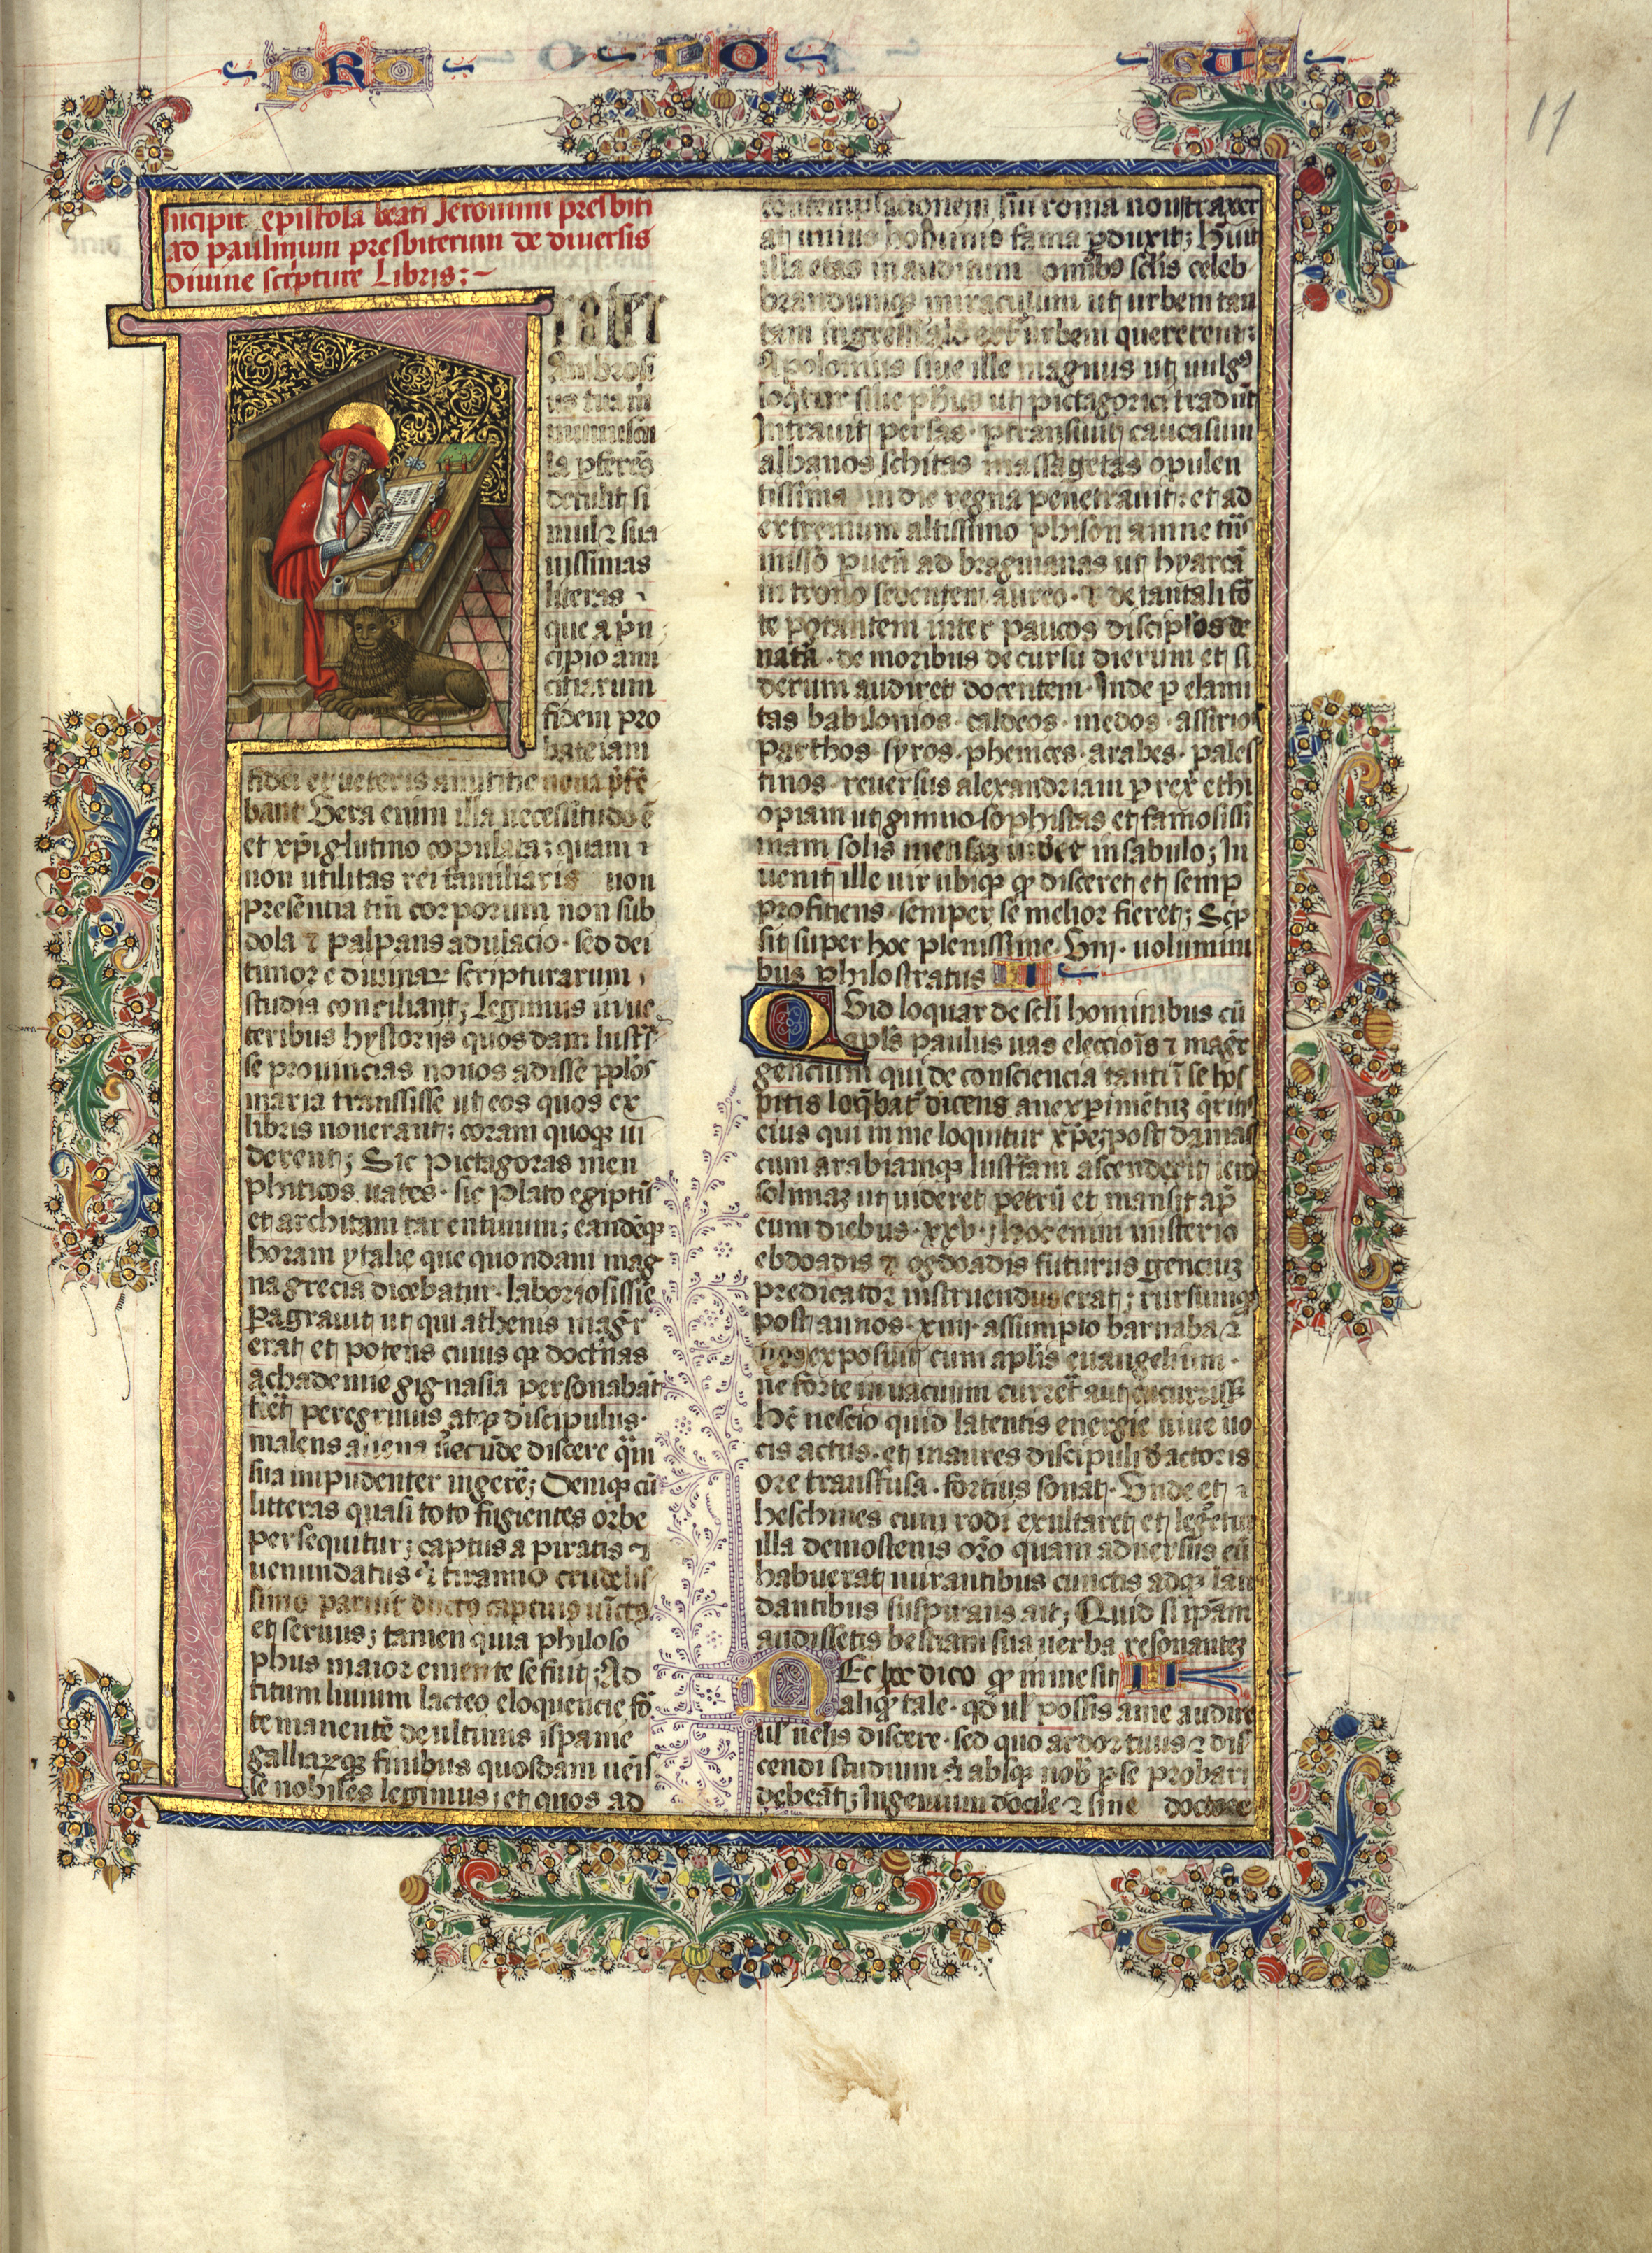 PRO LO GUS
11
Incipit epistola beati Jeronimi presbiti
ad paulinum presbiterum de diuersis
diuine scripture Libris:~
Frater
Ambrosi
us tua m
munuscu
la pferēs
detulit si
mul ⁊ sua
uissimas
literas ⁊
que a prī
cipio ami
citiarum
fidem pro
bate iam
fidei et ueteris amicitie noua pfe
bant Vera enim illa necessitudo ē
et xp̄i glutino copulata; quam ⁊
non utilitas rei familiaris non
presentia tm̄ corporum non sub
dola ⁊ palpans adulacio · sed dei
timor e diuinaꝝ scripturarum
studia conciliant; Legimus in ue
teribus hystorijs quosdam lustrᷓ
se prouincias nouos adisse ppl̄os
maria transisse ut eos quos ex
libris nouerant; coram quoqꝫ ui
derent; Sic Pictagoras men
phiticos uates · sic Plato egiptū
et architam tarentinum; eandēqꝫ
horam ytalie que quondam mag
na grecia dicebatur · laboriosissīe
pagrauit ut qui athenis magr̄
erat et potens cuius qꝫ doctr̄nas
achademie gignasia personabāt
fiēt peregrinus atqꝫ discipulus ·
malens aliena uecūde discere qᷓm
sua impudenter ingerē; Deniqꝫ cū
litteras quasi toto fugientes orbe
persequitur; captus a piratis ⁊
uenundatus · ⁊ tiranno crudelis
simo paruit ductꝰ captiuꝰ uīctꝰ
et seruus; tamen quia philoso
phus maior emente se fuit; Ad
titum liuium lacteo eloquencie fō
te manentē de ultimis ispanie
galliaꝝqꝫ finibus quosdam ueīs
se nobiles legimus; et quos ad
contemplacionem sui roma non traxer
at unius hominis fama pduxit; Huit
illa etas inauditum omībꝰ sclis celeb
brandumqꝫ miraculum ut urbem tan
tam ingressi aliđ extᷓ urbem quererent;
Apolonius siue ille magnus ut uulgꝰ
loqtur siue ph̄us ut pictagorici tradūt
Intrauit persas · ptransiuit caucasum
albanos schitas massagetas opulen
tissima indie regna penetrauit; et ad
extremum altissimo phison amne tn̄s
misso puen̄ ad bragmanas ut hyarcā
in trono sedentem aureo · ⁊ de tantali fō
te potantem inter paucos discipl'os de
natā · de moribus de cursu dierum et si
derum audiret docentem · Inde p elami
tas babilonios · caldeos · medos · assirios
Parthos · syros · phenices · arabes · pales
tinos · reuersus alexandriam prex̄ ethi
opiam ut gimnosophistas et famosissi
mam solis mensaꝫ uideret in sabulo; In
uenit ille uir ubiqꝫ qꝫ disceret et semp
proficiens · semper se melior fieret; Scrip
sit super hoc plenissime · Viij · uolumini
bus philostratus II
Quid loquar de seculi hominibus cū
apl̄s paulus uas eleccioīs ⁊ magr̄
gencium qui de consciencia tanti ī se hos
pitis loqbat' dicens an experimētuꝫ qritis
eius qui in me loquitur xp̄c; post damas
cum arabiamqꝫ lustᷓtam ascenderit iero
solimaꝫ ut uideret petrū et mansit ap̄
eum diebus · xxv · hoc enim misterio
ebdoadis ⁊ ogdoadis futurus genciuꝫ
predicator instruendus erat; rursumqꝫ
post annos · xiiij · assumpto barnaba ⁊
tito exposuit cum aplis euangelium ·
ne forte in uacuum currēt aut cucurrissꝫ
Hēt nescio quid latentis energie uiue uo
cis actus · et in aures discipuli d'actoris
ore transfusa · fortius sonat · Vnde et ⁊
heschines cum rodi exultaret et legeretur
illa demostenis or̄o quam aduersus eū
habuerat mirantibus cunctis adqꝫ lau
dantibus suspirans ait; Quid si ip̄am
audissetis bestiam sua uerba resonanteꝫ
Nec hec dico qꝫ in me sit III
aliqꝫ tale · qd' ul' possis a me audire
ul' uelis discere · sed quo ardor tuus ⁊ dis
cendi studium ⁊ absqꝫ nob̄ p se probari
debeat; Ingenium docile ⁊ sine doctore